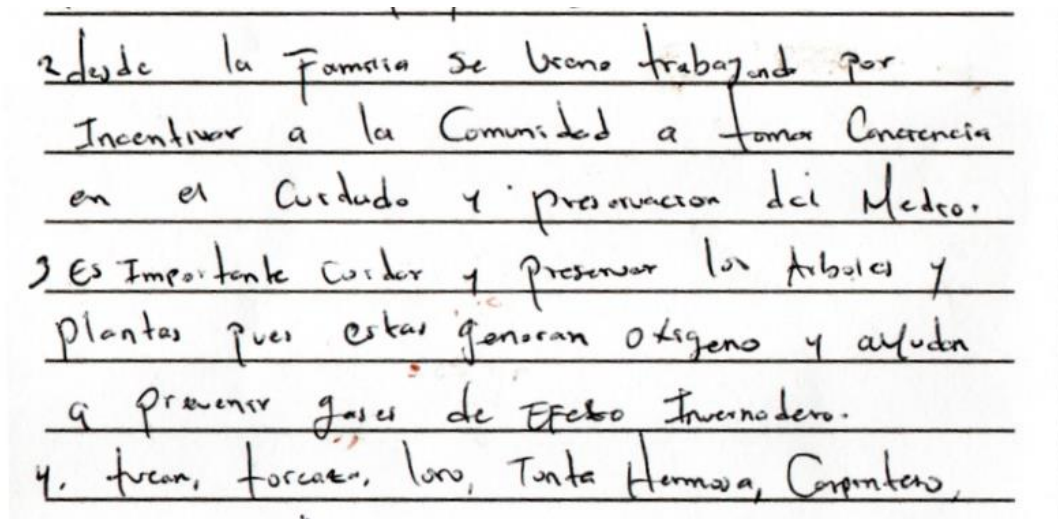 2 desde la Familia se viene trabajando por
Incentivar a la Comunidad a tomar Conciencia
en el Cuidado y preservacion del Medio.
3 Es Importante Cuidar y Preservar los Arboles y
plantas pues estas generan oxigeno y ayudan
a prevenir gases de Efecto Invernadero.
4. tucan, torcaza, loro, Tonta Hermosa, Carpintero,